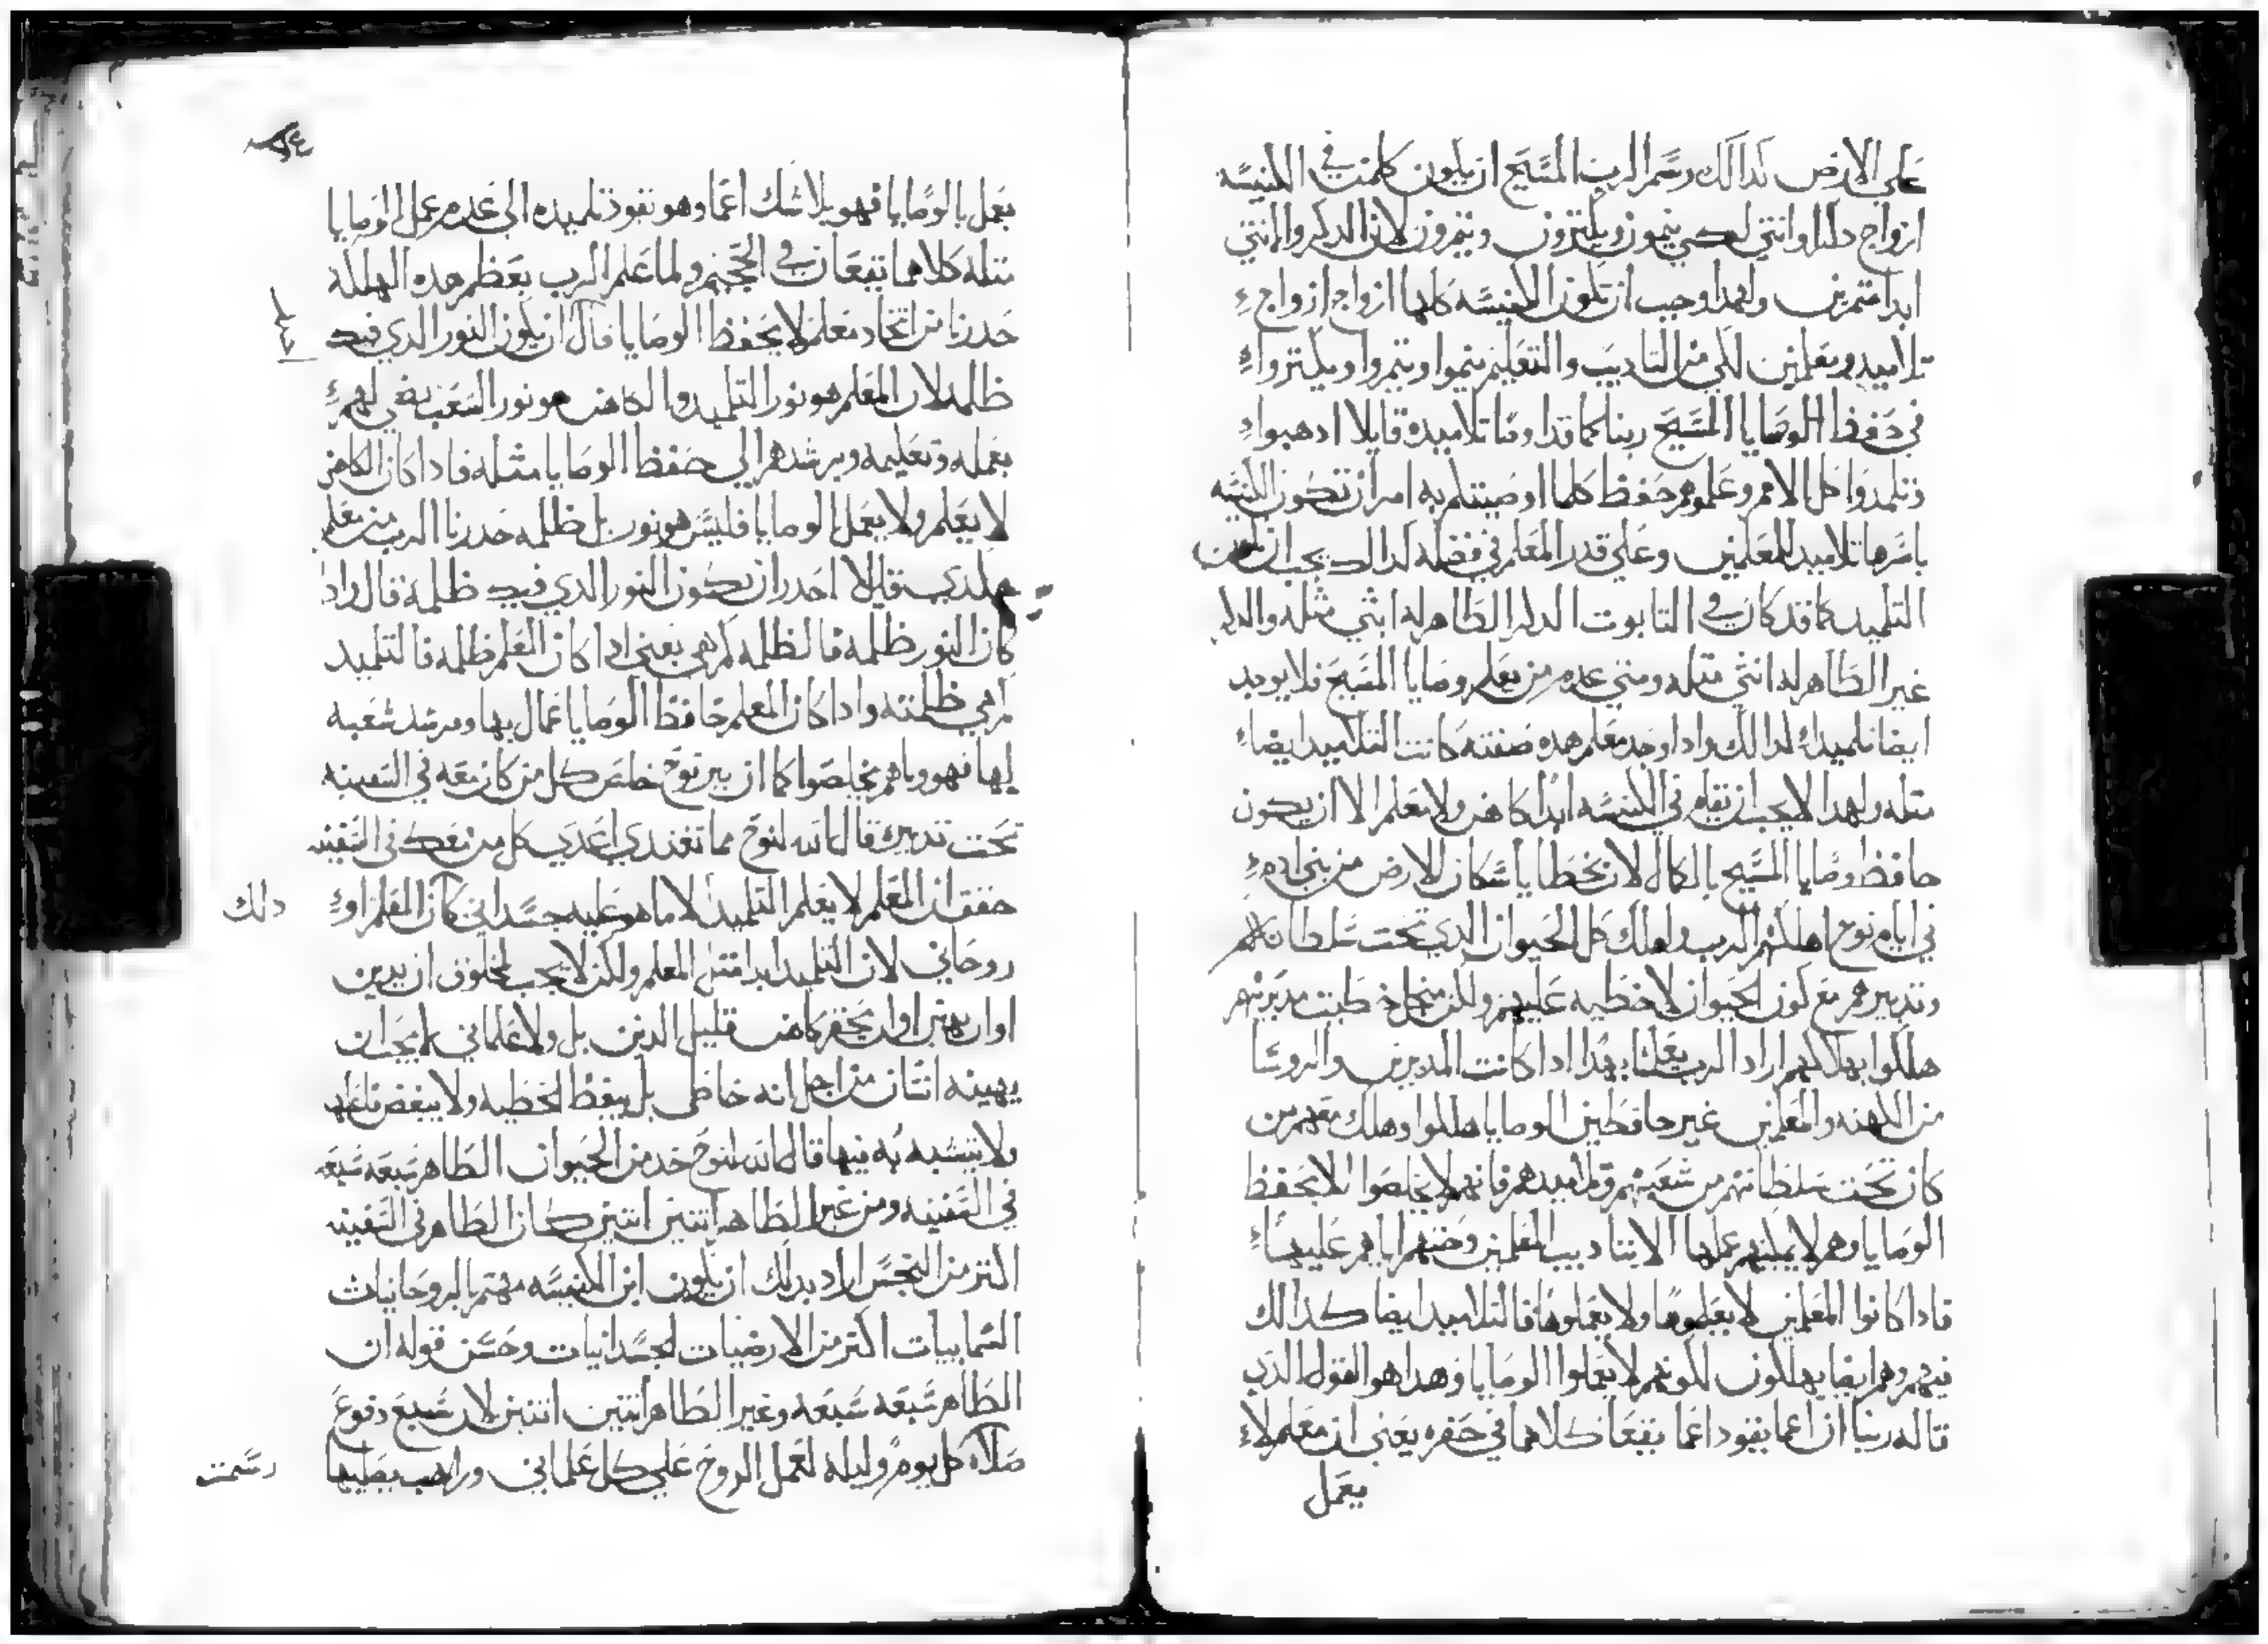 علي الارض كدالك رسم الرب المسيح ان يكون كلمن في الكنيسه
ازواج دكر وانتي لكي ينمون ويكترون ويتمرون لان الدكر والانتي
ابدا متمرين ولهدا وجب ان تكون الكنيسه كلها ازواج ازواج
تلاميد ومعلمين لكي من التاديب والتعليم ينموا ويتمروا ويكتروا
في حفظ الوصايا المسيح ربنا كما قد اوصا تلاميده قايلا ادهبوا
وتلمدوا كل الامم وعلموهم حفظ كلما اوصيتكم به امر ان تكون الكنيسه
باسرها تلاميد للمعلمين وعلي قدر المعلم في فضله كدالك يجب ان يكون
التلميد كما قد كان في التابوت الدكر الطاهر له انثي مثله والدكر
غير الطاهر له انتي متله ومتي عدم من يعلم وصايا المسيح فلا يوجد
ايضا تلميدا لدالك وادا وجد معلم هده صفته كانت التلاميد ايضا
متله ولهدا لا يجب ان يقام في الكنيسه ابدا كاهن ولا معلم الا ان يكون
حافظ وصايا المسيح بالكمال لان بخطايا سكان الارض من بني ادم
في ايام نوح اهلكهم الرب ولهلك كل الحيوان الدي تحت سلطانهم
وتدبيرهم مع كون الحيوان لا خطيه عليهم ولكن من اجل خطيت مدبرينهم
هلكوا بهلاكهم اراد الرب يعلمنا بهدا ادا كانت المدبرين والروسا
من الكهنه والمعلمين غير حافظين الوصايا هلكوا وهلك معهم من
كان تحت سلطانهم من شعبهم وتلاميدهم فانهم لا يخلصوا الا بحفظ
الوصايا وهم لا يمكنهم عملها الا بتاديب المعلمين وحتهم اياهم عليها
فادا كانوا المعلمين لا يعلموها ولا يعملوها فالتلاميد ايضا كدالك
فيهم وهم ايضا يهلكون لكونهم لا يعملوا الوصايا وهدا هو القول الدي
قاله ربنا ان اعما يقود اعما يقعان كلاهما في حفره يعني ان معلم لا
يعمل
يعمل بالوصايا فهو بلا شك اعما وهو يقود تلميده الي عدم عمل الوصايا
متله كلاهما يقعان في الجحيم ولما علم الرب بعظم هده الهلكه
حدرنا من اتخاد معلم لا يحفظ الوصايا فقال ان يكون النور الدي فيك
ظلمه لان المعلم هو نور التلميد والكاهن هو نور الشعب يضي لهم
بعمله وتعليمه ويرشدهم الي حفظ الوصايا مثله فادا كان الكاهن
لا يعلم ولا يعمل الوصايا فليس هو نور بل ظلمه حدرنا الرب من معلم
هكدي قايلا احدر ان يكون النور الدي فيك ظلمة قال وادا
كان النور ظلمة فالظلمه كم هي يعني ادا كان المعلم ظلمه فالتلميد
كم هي ظلمته وادا كان المعلم حافظ الوصايا عمال بها ومرشد شعبه
اليها فهو وهم يخلصوا كما ان ببر نوح خلص كل من كان معه في السفينه
تحت تدبيره قال الله لنوح مما تغتدي اغدي كل من معك في السفينه
حقق ان المعلم لا يعلم التلميد الا ما هو عليه جسداني كان المعلم او
دلك
روحاني لان التلميد ابدا متل المعلم ولكن لا يجب لمخلوق ان يدين
او ان يهين او ان يحقر كاهن قليل الدين بل ولا علماني لا يجب ان
يهينه انسان من اجل انه خاطي بل يبغظ الخطيه ولا يبغض فاعلها
ولا يتشبه به فيها قال الله لنوح خد من الحيوان الطاهر سبعه سبعه
في السفينه ومن غير الطاهر اتنين اتنين كان الطاهر في السفينه
اكتر من النجس اراد بدلك ان يكون ابن الكنيسه مهتم بالروحانيات
السمايات اكتر من الارضيات الجسدانيات وحسن قوله ان
الطاهر سبعه سبعه وغير الطاهر اتنين اتنين لان سبع دفوع
صلاه كل يوم وليله لعمل الروح علي كل علماني وراهب يصليها
رسمت